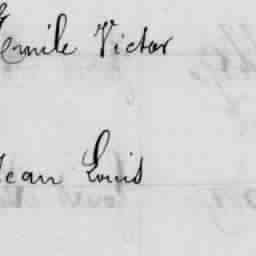 Emile Victor
Jean Louis